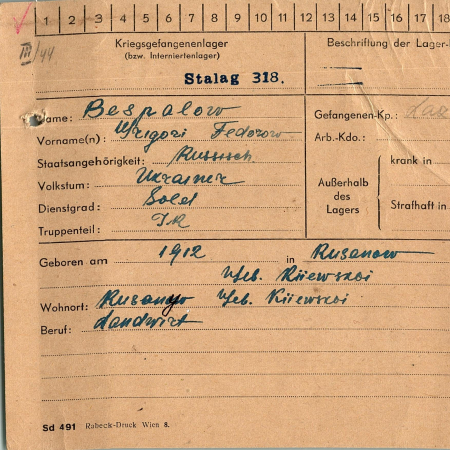 1 2 3 4 5 6 7 8 9 10 11 12 13 14 15 16 17 18
III/44
Kriegsgefangenenlager
(bzw. Interniertenlager)
Beschriftung der Lager-
Stalag 318.
Name: Bespalow
Vorname(n): Grigori Fedorow
Staatsangehörigkeit: Russisch
Volkstum: Ukrainer
Dienstgrad: Sold
Truppenteil: IR
Gefangenen-Kp.: Laz
Arb.-Kdo.:
Außerhalb
des
Lagers
krank in
Strafhaft in
Geboren am 1912 in Rusanow
Geb. Kiewskoi
Wohnort: Rusanow Geb. Kiewskoi
Beruf: Landwirt
Sd 491 Rabeck-Druck Wien 8.